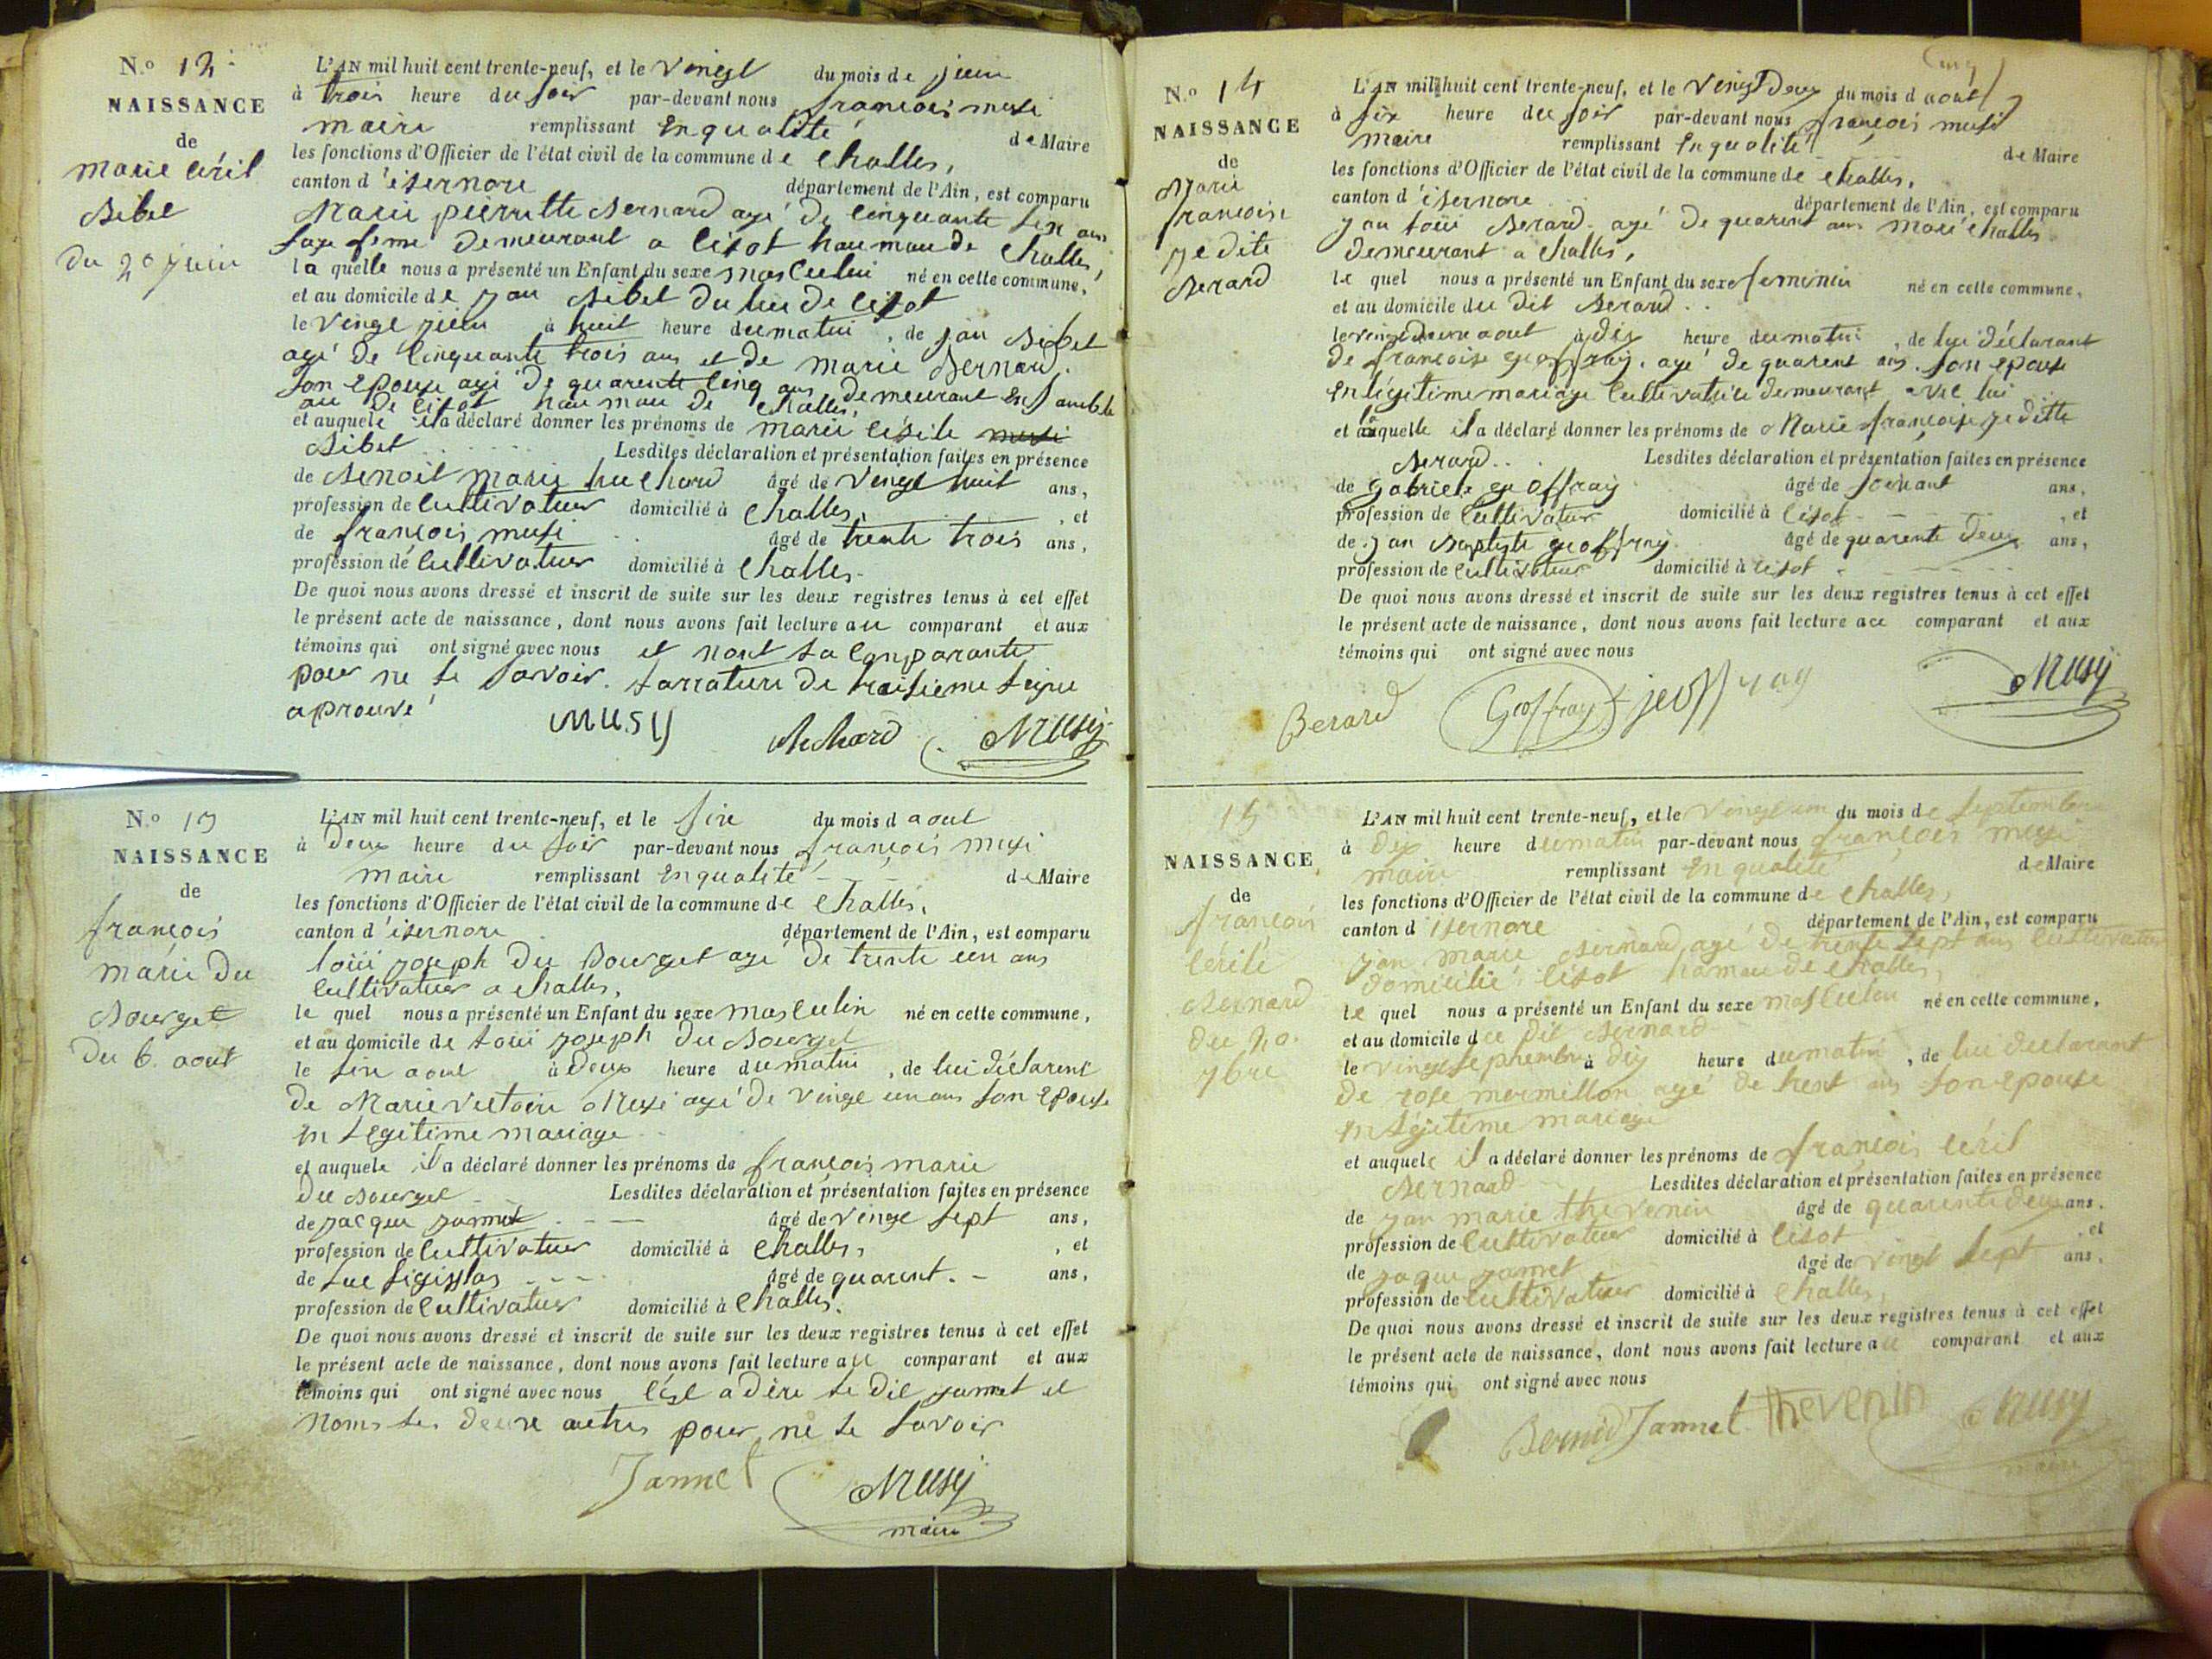 N.o 12
NAISSANCE
de
marie céril
Bibet
du 20 juin
L'AN mil huit cent trente-neuf, et le vingt du mois de juin
à trois heure du soir par-devant nous françois musi
maire remplissant en qualité de Maire
les fonctions d'Officier de l'état civil de la commune de Challes,
canton d'isernore département de l'Ain, est comparu
Marie pierrette Bernard agé de cinquante six ans
sage feme demeurant a cisot haumau de Challes,
la quelle nous a présenté un Enfant du sexe masculin né en cette commune,
et au domicile de jan Bibet du lieu de cisot
le vingt juin à huit heure du matin, de jan Bibet
agé de cinquante trois ans et de marie Bernard.
son epouse agé de quarente cinq ans demeurant ensamble
au de cisot haumau de Challes,
et auquele il a déclaré donner les prénoms de marie césile
Bibet Lesdites déclaration et présentation faites en présence
de Benoit marie huchard âgé de vingt huit ans,
profession de cultivateur domicilié à Challes, et
de françois musi âgé de trente trois ans,
profession de cultivateur domicilié à Challes
De quoi nous avons dressé et inscrit de suite sur les deux registres tenus à cet effet
le présent acte de naissance, dont nous avons fait lecture au comparant et aux
témoins qui ont signé avec nous et nont la comparante
pour ne le savoir. la rature de traisieme ligne
aprouvé
MUSY huchard Musy
N.o 13
NAISSANCE
de
françois
marie du
Bourget
du 6. aout
L'AN mil huit cent trente-neuf, et le sixe du mois d aout
à deux heure du soir par-devant nous françois musi
maire remplissant en qualité de Maire
les fonctions d'Officier de l'état civil de la commune de Challes,
canton d'isernore département de l'Ain, est comparu
louï joseph du Bourget agé de trente un ans
cultivateur a Challes,
le quel nous a présenté un Enfant du sexe masculin né en cette commune,
et au domicile de louï joseph du Bourget
le sixe aout à deux heure du matin, de lui déclarent
de Marie victoire Musi agé de vingt un ans son epouse
en legitime mariage
et auquele il a déclaré donner les prénoms de françois marie
du Bourget Lesdites déclaration et présentation faites en présence
de jacque jannet âgé de vingt sept ans,
profession de cultivateur domicilié à Challes, et
de luc âgé de quarent. ans,
profession de cultivateur domicilié à Challes.
De quoi nous avons dressé et inscrit de suite sur les deux registres tenus à cet effet
le présent acte de naissance, dont nous avons fait lecture au comparant et aux
témoins qui ont signé avec nous le dit jannet et
nons les deuxe autres pour ne le savoir
Jannet Musy
maire
N.o 14
NAISSANCE
de
Marie
francoise
jedite
Berard
L'AN mil huit cent trente-neuf, et le vingt deux du mois d aout
à six heure du soir par-devant nous françois musi
maire remplissant en qualité de Maire
les fonctions d'Officier de l'état civil de la commune de Challes,
canton d'isernore département de l'Ain, est comparu
jan louï Berard agé de quarent ans
demeurant a Challes,
le quel nous a présenté un Enfant du sexe feminin né en cette commune,
et au domicile du dit Berard
le vingt deuxe aout à dix heure du matin, de lui déclarant
de françoise geoffray. agé de quarent ans. son epouse
en légitime mariage cultivatrice demeurant avec lui
et àquelle il a déclaré donner les prénoms de Marie françoise jeditte
Berard Lesdites déclaration et présentation faites en présence
de gabriele geoffray âgé de soixant ans,
profession de cultivateur domicilié à cisot, et
de jan Baptiste geoffray âgé de quarente deux ans,
profession de cultivateur domicilié à cisot
De quoi nous avons dressé et inscrit de suite sur les deux registres tenus à cet effet
le présent acte de naissance, dont nous avons fait lecture au comparant et aux
témoins qui ont signé avec nous
Berard Geoffray jeoffray Musy
15
NAISSANCE
de
françois
cérile
Bernard
du 20.
7bre
L'AN mil huit cent trente-neuf, et le vingt un du mois de septembre
à dix heure du matin par-devant nous françois musi
maire remplissant en qualité de Maire
les fonctions d'Officier de l'état civil de la commune de Challes,
canton d isernore département de l'Ain, est comparu
jan marie Bernard agé de trente sept ans cultivateur
domicilié cisot hamau de Challes,
le quel nous a présenté un Enfant du sexe masculin né en cette commune,
et au domicile du dit Bernard
le vingt septembre à dix heure du matin, de lui declarant
de rose mermillon agé de trent ans son epouse
en légitime mariage
et auquele il a déclaré donner les prénoms de françois céril
Bernard Lesdites déclaration et présentation faites en présence
de jan marie thevenin âgé de quarente deux ans.
profession de cultivateur domicilié à cisot, et
de jaque jannet âgé de vingt sept ans.
profession de cultivateur domicilié à Challes,
De quoi nous avons dressé et inscrit de suite sur les deux registres tenus à cet effet
le présent acte de naissance, dont nous avons fait lecture au comparant et aux
témoins qui ont signé avec nous
Bernard Jannet Thevenin Musy
maire